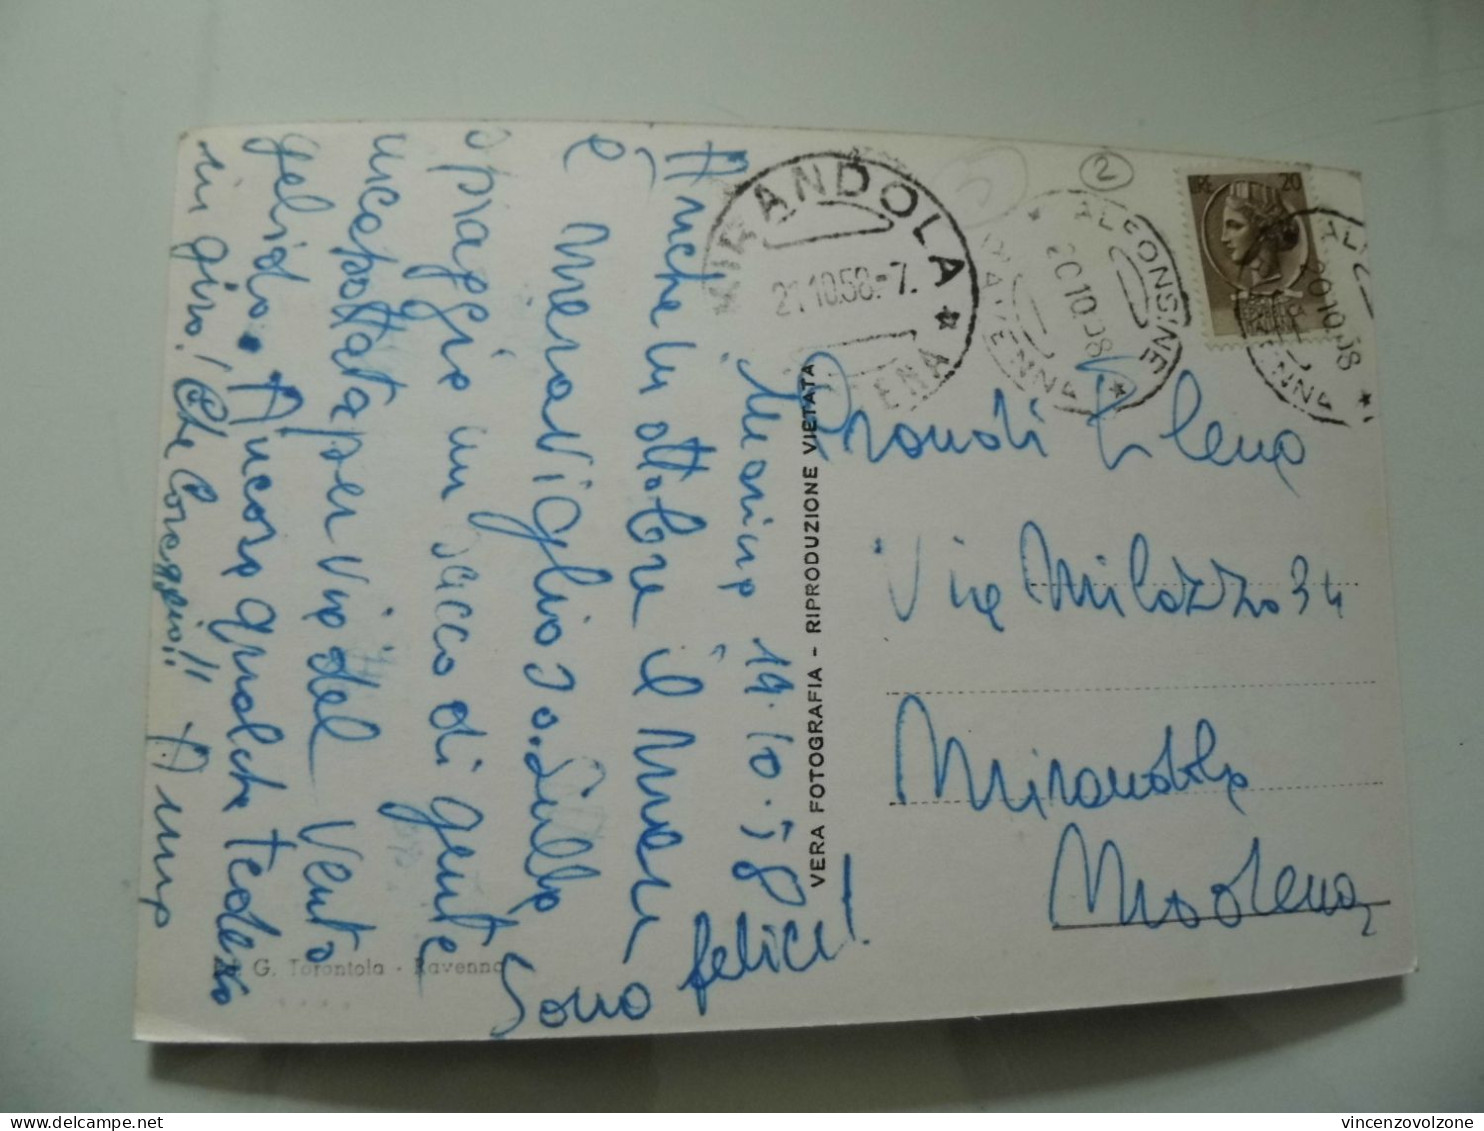 Marina 19.10.58
Anche in ottobre il mare
è meraviglioso. Sulla
spiaggia un sacco di gente
incappottata per via del vento
gelido. Ancora qualche tedesco
in giro! Che coraggio!!
Anna
Sono felice!
G. Torontola - Ravenna
VERA FOTOGRAFIA - RIPRODUZIONE VIETATA
MIRANDOLA
21.10.58.-7.
2
ALFONSINE
RAVENNA
20.10.58
LIRE 20
REPUBBLICA
ITALIANA
20.10.58
Prandi Elena
Via Milazzo 34
Mirandola
Modena
vincenzovolzone